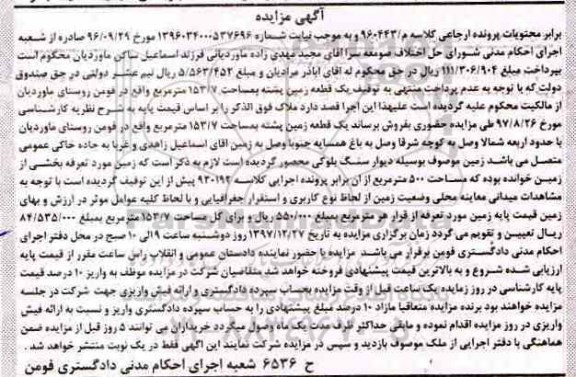 آگهی مزایده
برابر محتویات پرونده ارجاعی کلاسه م/۹۶۰۴۴۳ و به موجب نیابت شماره ۱۳۹۶۰۳۴۰۰۰۵۳۷۶۹۶ مورخ ۹۶/۰۹/۲۹ صادره از شعبه
اجرای احکام مدنی شورای حل اختلاف صومعه سرا آقای مجید مهدی زاده ماوردیانی فرزند اسماعیل ساکن ماوردیان محکوم است
بپرداخت مبلغ ۱۱۱/۳۰۶/۹۰۴ ریال در حق محکوم له آقای اباذر مرادیان و مبلغ ۵/۵۶۳/۴۵۲ ریال نیم عشر دولتی در حق صندوق
دولت که با توجه به عدم پرداخت منتهی به توقیف یک قطعه زمین پشته بمساحت ۱۵۳/۷ مترمربع واقع در فومن روستای ماوردیان
از مالکیت محکوم علیه گردیده است علیهذا این اجرا قصد دارد ملاک فوق الذکر را بر اساس قیمت پایه به شرح نظریه کارشناسی
مورخ ۹۷/۸/۲۶ طی مزایده حضوری بفروش برساند یک قطعه زمین پشته بمساحت ۱۵۳/۷ مترمربع واقع در فومن روستای ماوردیان
با حدود اربعه شمالا وصل به کوچه شرقا وصل به باغ همسایه جنوبا وصل به زمین آقای اسماعیل زاهدی و غربا به جاده خاکی عمومی
متصل می باشد زمین موصوف بوسیله دیوار سنگ بلوکی محصور گردیده است لازم به ذکر است که زمین مورد تعرفه بخشی از
زمین خوانده بوده که مساحت ۵۰۰ مترمربع از آن برابر پرونده اجرایی کلاسه ۹۳۰۱۹۲ پیش از این توقیف گردیده است با توجه به
مشاهدات میدانی معاینه محلی وضعیت زمین از لحاظ نوع کاربری و استقرار جغرافیایی و با لحاظ کلیه عوامل موثر در ارزش و بهای
زمین قیمت پایه زمین مورد تعرفه از قرار هر مترمربع بمبلغ ۵۵۰/۰۰۰ ریال و برای کل مساحت ۱۵۳/۷ مترمربع بمبلغ ۸۴/۵۳۵/۰۰۰
ریال تعیین و تقویم می گردد زمان برگزاری مزایده به تاریخ ۱۳۹۷/۱۲/۲۷ روز دوشنبه ساعت ۹ الی ۱۰ صبح در محل دفتر اجرای
احکام مدنی دادگستری فومن برقرار می باشد مزایده با حضور نماینده دادستان عمومی و انقلاب راس ساعت مقرر از قیمت پایه
ارزیابی شده شروع و به بالاترین قیمت پیشنهادی فروخته خواهد شد متقاضیان شرکت در مزایده موظف به واریز ۱۰ درصد قیمت
پایه کارشناسی در روز زمایده یک ساعت قبل از وقت مزایده بحساب سپرده دادگستری و ارائه فیش واریزی جهت شرکت در جلسه
مزایده خواهند بود برنده مزایده متعاقبا مازاد ۱۰ درصد مبلغ پیشنهادی را به حساب سپرده دادگستری واریز و نسبت به ارائه فیش
واریزی در روز مزایده اقدام نموده و مابقی حداکثر ظرف مدت یک ماه وصول میگردد خریداران می توانند ۵ روز قبل از مزایده ضمن
هماهنگی با دفتر اجرایی از ملک موصوف بازدید و سپس در مزایده شرکت نمایند این آگهی فقط در یک نوبت منتشر خواهد شد .
ح ۶۵۳۶ شعبه اجرای احکام مدنی دادگستری فومن